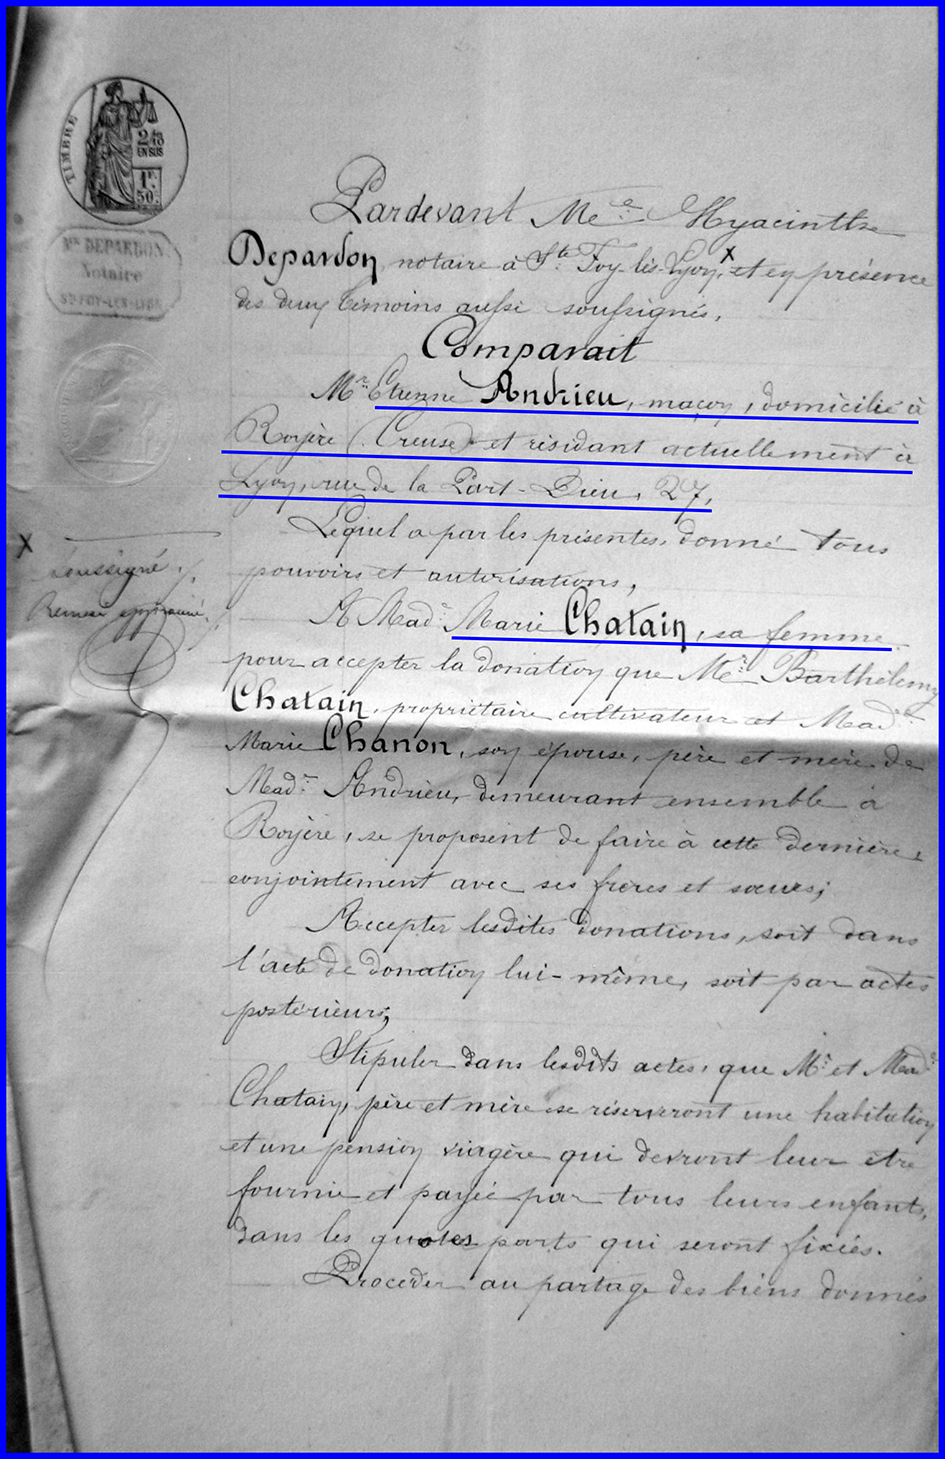 TIMBRE
2/10
EN SUS
1F.
50c.
Me DEPARDON
Notaire
Ste-FOY-LÈS-LYON
Pardevant Me Hyacinthe
Depardon, notaire à Ste Foy-lès-Lyon, x et en présence
des deux témoins aussi soussignés,
Comparait
Mr Etienne Andrieu, maçon, domicilié à
Royère (Creuse) et résidant actuellement à
Lyon, rue de la Part-Dieu, 27,
Lequel a par les présentes, donné tous
pouvoirs et autorisations,
A Made Marie Chatain, sa femme
pour accepter la donation que Mr Barthélemy
Chatain, propriétaire cultivateur et Made
Marie Chanon, son épouse, père et mère de
Made Andrieu, demeurant ensemble à
Royère, se proposent de faire à cette dernière,
conjointement avec ses frères et sœurs;
Accepter lesdites donations, soit dans
l'acte de donation lui-même, soit par actes
postérieurs;
Stipuler dans lesdits actes, que Mr et Made
Chatain, père et mère se réserveront une habitation
et une pension viagère qui devront leur être
fournie et payée par tous leurs enfants,
dans les quotes parts qui seront fixées.
Procéder au partage des biens donnés
x
soussigné ./.
Renvoi approuvé.